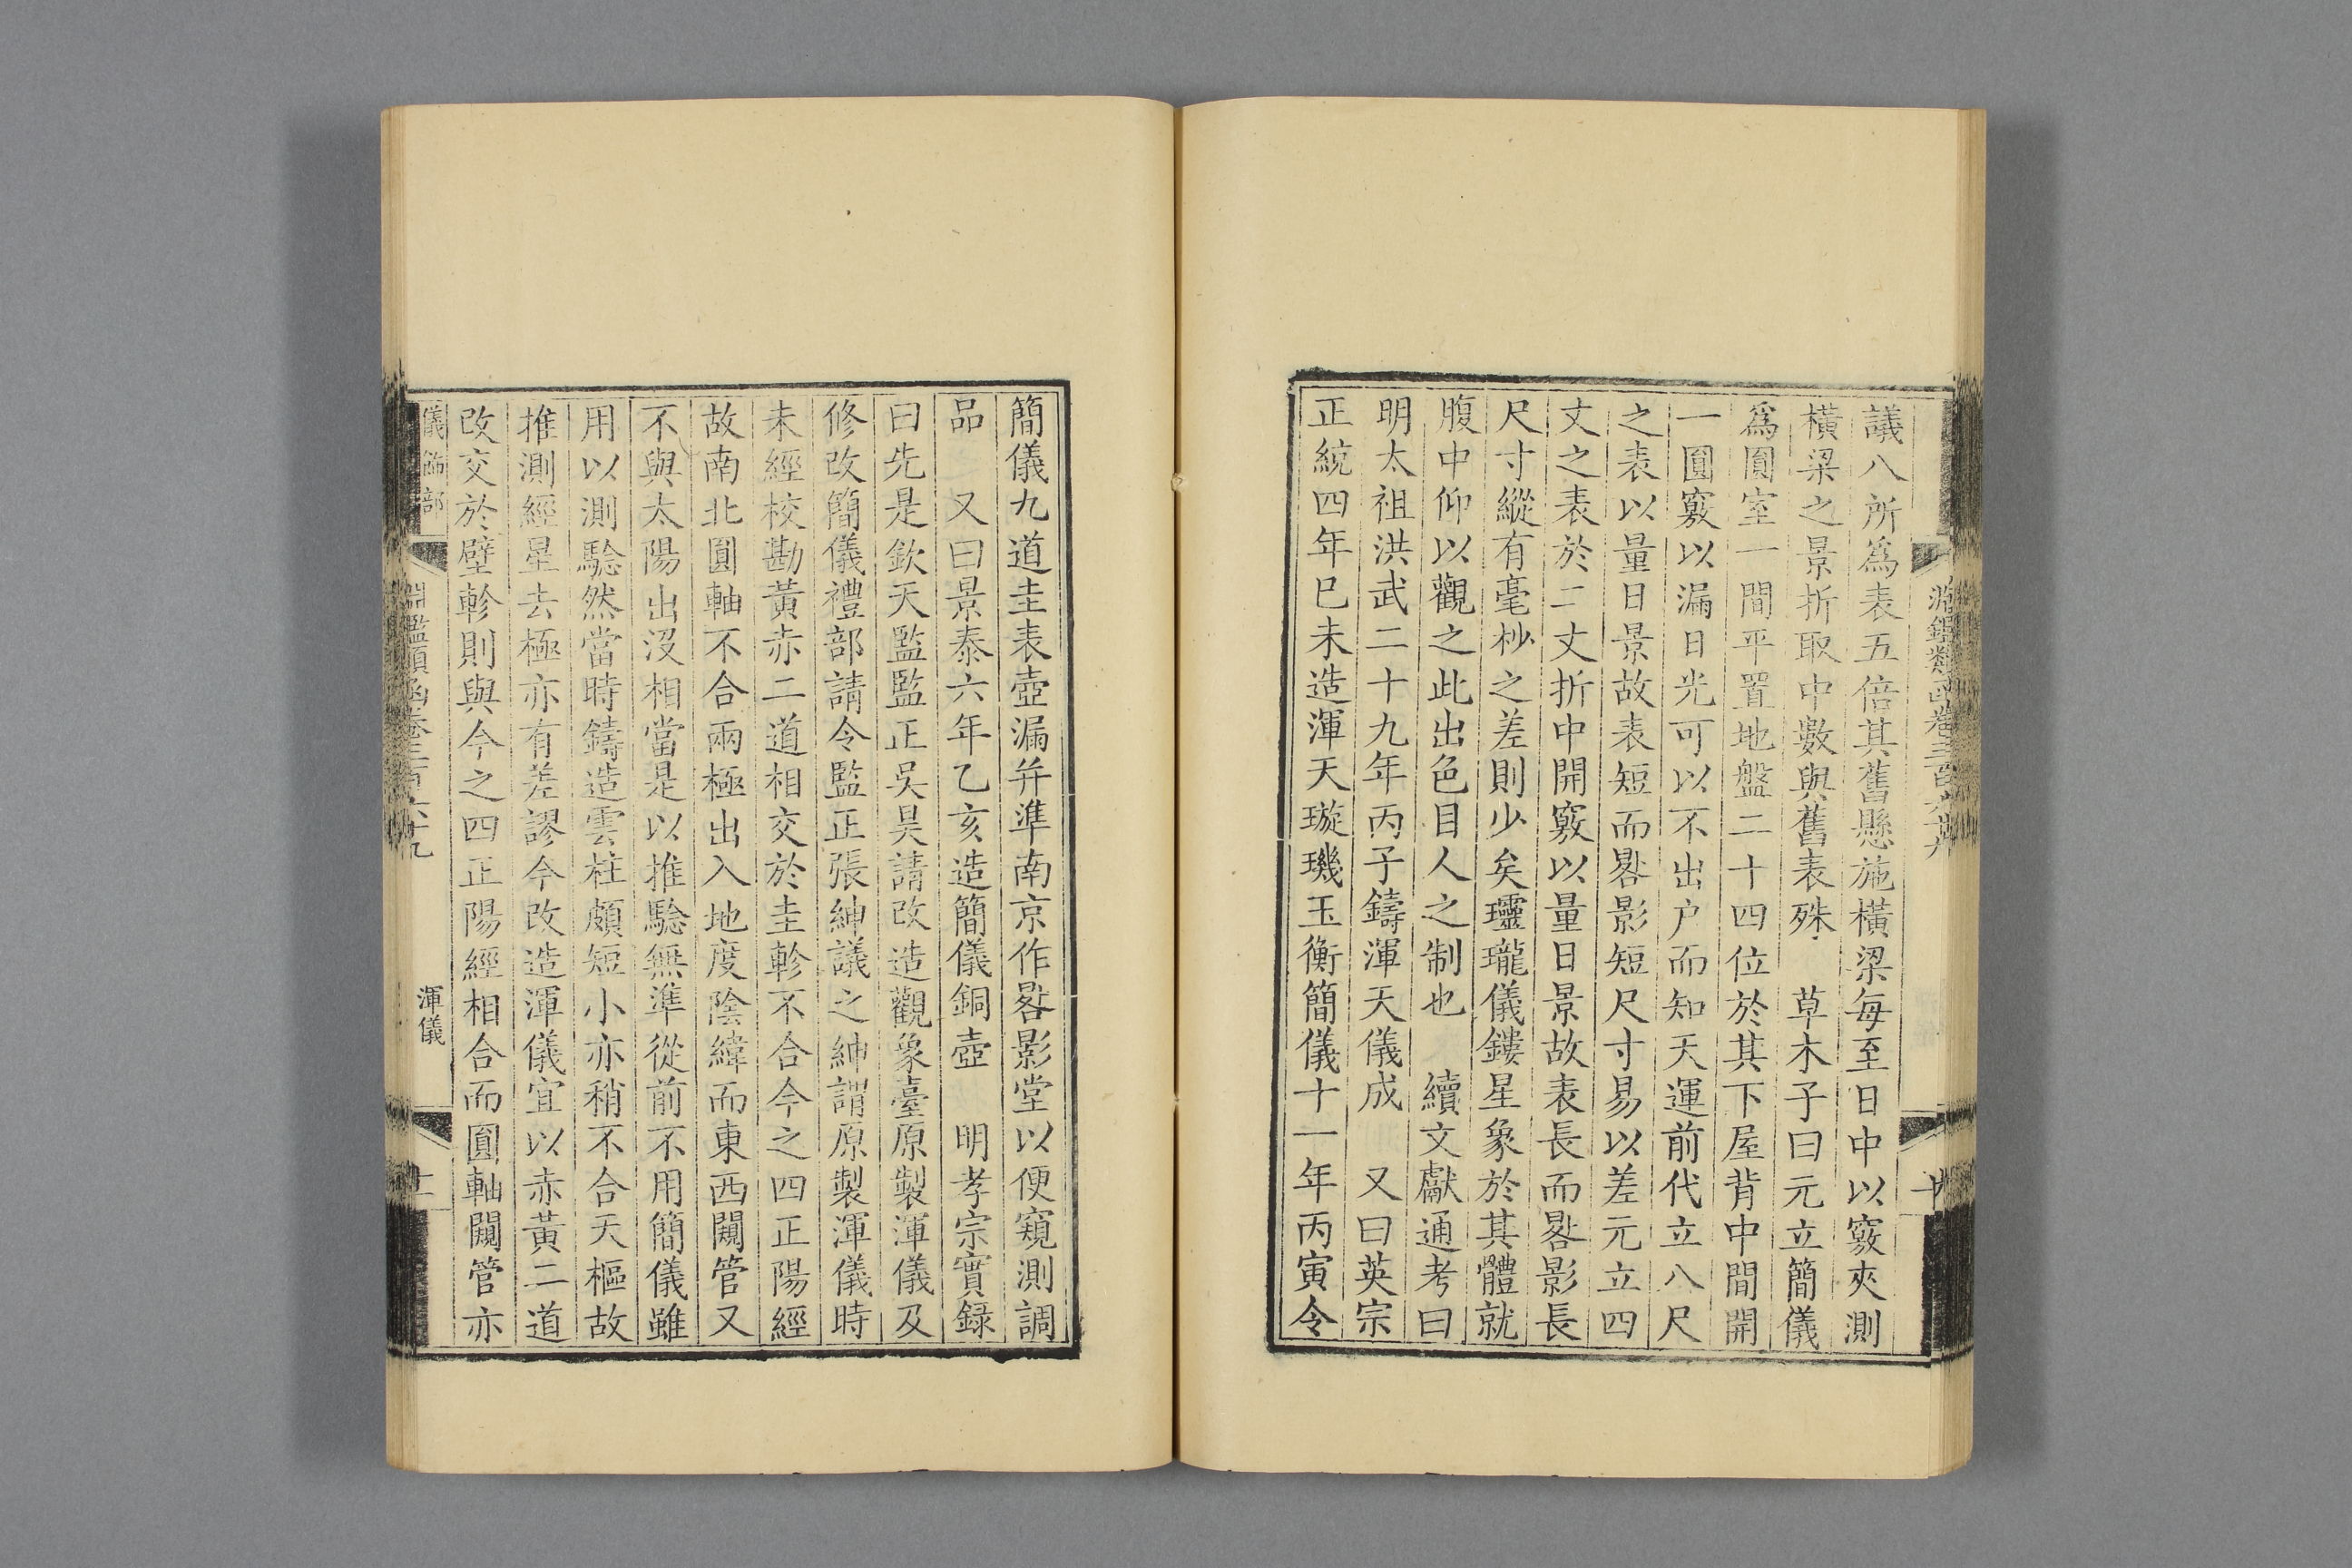 淵鑑類函卷三百六十九
十
議八所爲表五倍其舊懸施橫梁每至日中以竅夾測
橫梁之景折取中數與舊表殊　草木子曰元立簡儀
爲圓室一間平置地盤二十四位於其下屋背中間開
一圓竅以漏日光可以不出户而知天運前代立八尺
之表以量日景故表短而晷影短尺寸易以差元立四
丈之表於二丈折中開竅以量日景故表長而晷影長
尺寸縱有毫杪之差則少矣璶瓏儀鏤星象於其體就
腹中仰以觀之此出色目人之制也　續文獻通考曰
明太祖洪武二十九年丙子鑄渾天儀成　又曰英宗
正統四年巳未造渾天璇璣玉衡簡儀十一年丙寅令
簡儀九道圭表壺漏并準南京作晷影堂以便窺測調
品　又曰景泰六年乙亥造簡儀銅壺　明孝宗實録
曰先是欽天監監正吳昊請改造觀象臺原製渾儀及
修改簡儀禮部請令監正張紳議之紳謂原製渾儀時
未經校勘黃赤二道相交於圭軫不合今之四正陽經
故南北圓軸不合兩極出入地度陰緯而東西闚管又
不與太陽出沒相當是以推驗無準從前不用簡儀雖
用以測驗然當時鑄造雲柱頗短小亦稍不合天樞故
推測經星去極亦有差謬今改造渾儀宜以赤黃二道
改交於壁軫則與今之四正陽經相合而圓軸闚管亦
儀飾部
淵鑑類函卷三百六十九
渾儀
十一